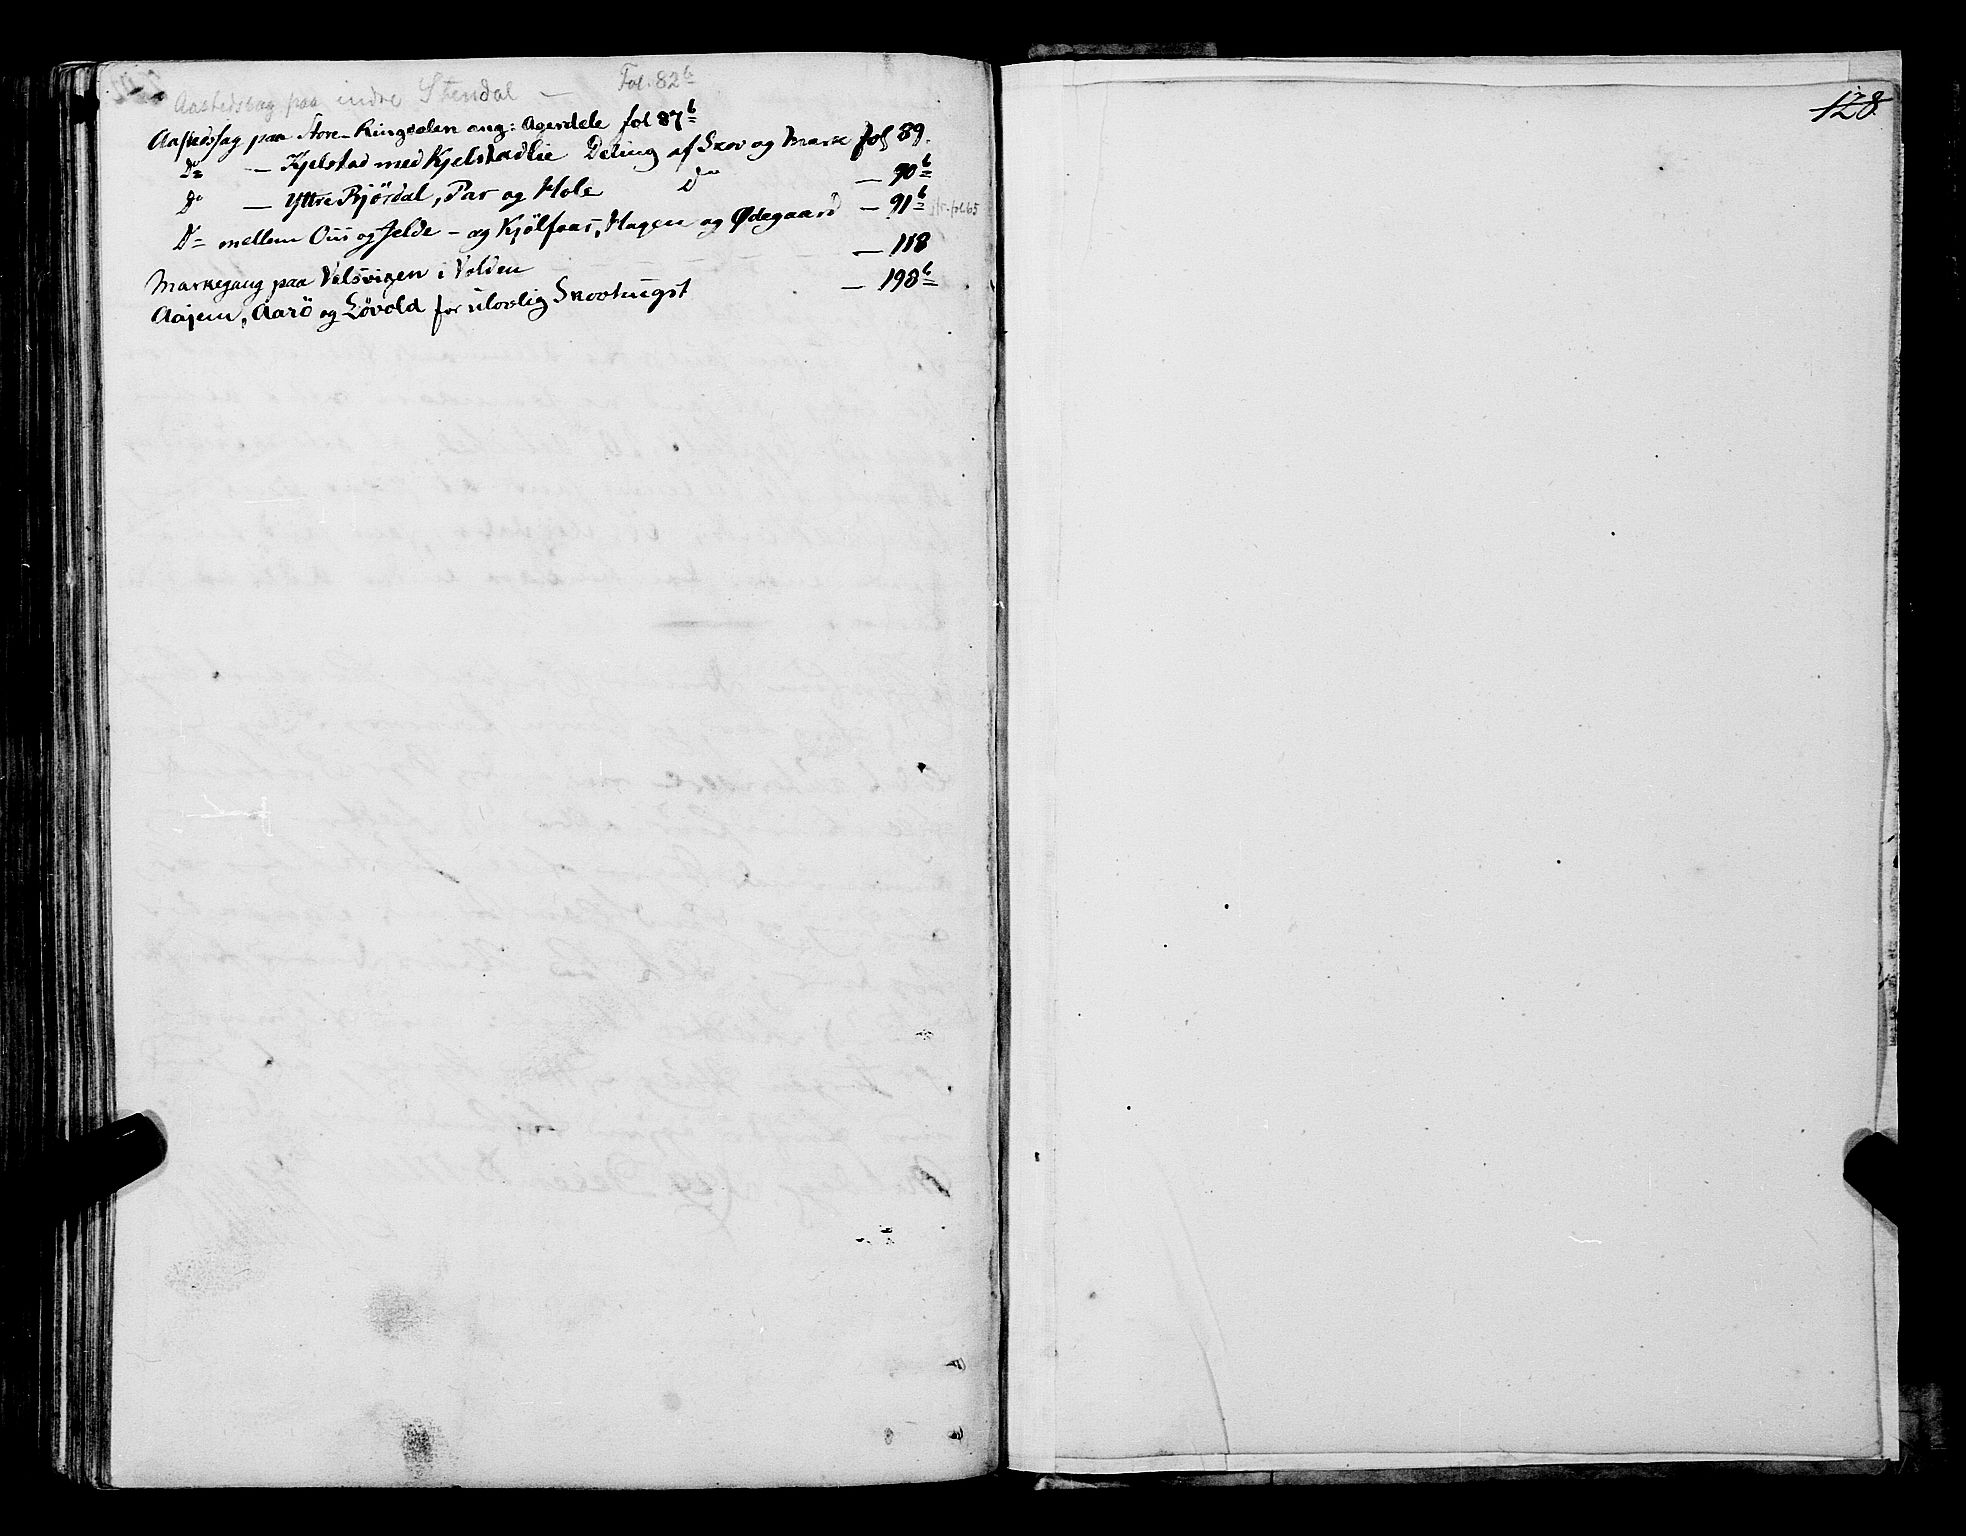 Aastedssag paa indre Stendal — Fol. 82b
Aastedssag paa Store-Ringdalen ang: Agerdele fol 87b
Do — Kjelstad med Kjelstadlie Deling af Skov og Mark fol 89.
Do — Yttre Bjørdal, Par og Hole do — 90b
Do mellem Ous og Jelde – og Kjölfaas, Hagen og Ødegaard — 91b str. fol 65
Markegang paa Velsvigen i Volden — 118
Aajem, Aarö og Løvold for ulovlig Skovhugst — 198b
128